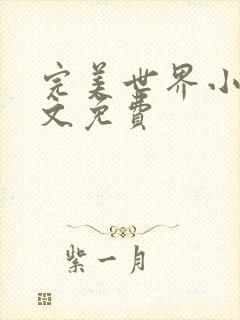 完美世界小
文免費
紫一月